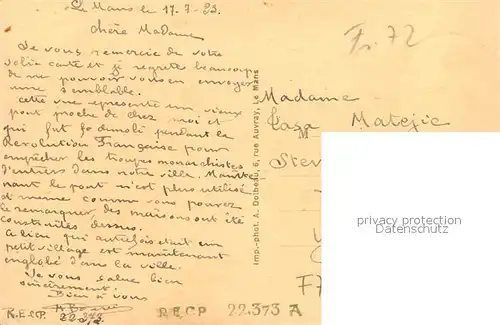 Le Mans le 17-7-23.
Chère Madame
Je vous remercie de votre
jolie carte et je regrette beaucoup
de ne pouvoir vous en envoyer
une semblable.
Cette vue représente un vieux
pont proche de chez moi et
qui fut démoli pendant la
Révolution Française pour
empêcher les troupes monarchistes
d'entrer dans notre ville. Mainte
nant le pont n'est plus utilisé
et même comme vous pouvez
le remarquer, des maisons ont été
construites dessus.
Ce lieu qui autrefois était un
petit village est maintenant
englobé dans la ville.
Je vous salue bien
sincèrement.
Bien à vous
R.E.C.P. 22.373
Imp.-phot. A. Dolbeau, 6, rue Auvray, Le Mans
Fr. 72
Madame
Matejic
privacy protection
Adressschutz
RECP 22.373 A